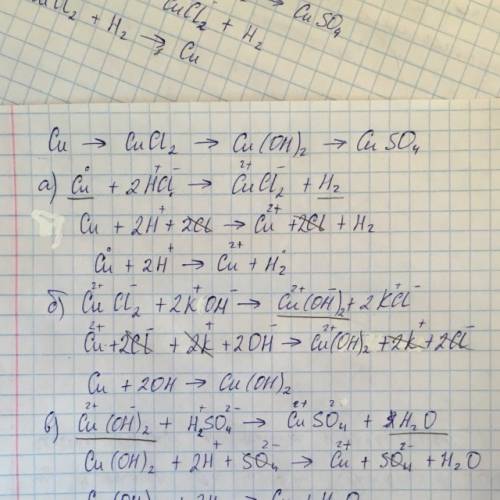 CuCl₂ + H₂ → CuSO₄
Cl₂ + H₂ → Cu
Cu → CuCl₂ → Cu(OH)₂ → CuSO₄
а) Cu⁰ + 2H⁺Cl⁻ → Cu²⁺Cl₂⁻ + H₂
Cu + 2H⁺ + 2Cl → Cu²⁺ + 2Cl + H₂
Cu⁰ + 2H⁺ → Cu²⁺ + H₂⁰
б) Cu²⁺Cl₂⁻ + 2K⁺OH⁻ → Cu²⁺(OH)₂⁻ + 2K⁺Cl⁻
Cu²⁺ + 2Cl⁻ + 2K⁺ + 2OH⁻ → Cu²⁺(OH)₂⁻ + 2K⁺ + 2Cl⁻
Cu + 2OH → Cu(OH)₂
в) Cu²⁺(OH)₂⁻ + H₂⁺SO₄²⁻ → Cu²⁺SO₄²⁻ + H₂O
Cu(OH)₂ + 2H⁺ + SO₄²⁻ → Cu²⁺ + SO₄²⁻ + H₂O